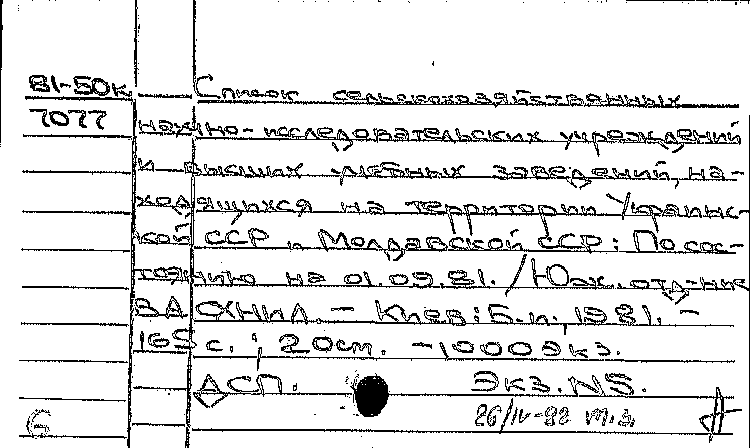 81-50к Список сельскохозяйственных
7077 научно-исследовательских учреждений
и высших учебных заведений, на-
ходящихся на территории Украинс-
кой ССР и Молдавской ССР: По сос-
тоянию на 01.09.81. / Юж. отд-ние
ВАСХНИЛ. - Киев: Б.и., 1981. -
165 с.; 20 см. - 1000 экз.
ДСП. Экз. N5.
26/IV-82 т.з.